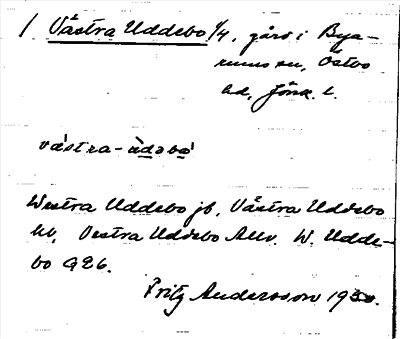 / Västra Uddebo 1/4, gård i Bya-
rums sn, Östbo
hd, Jönk. l.
västra-ùdəbò
Westra Uddebo jb, Västra Uddebo
Westra Uddebo W. Udde-
bo GEG.
Fritz Andersson